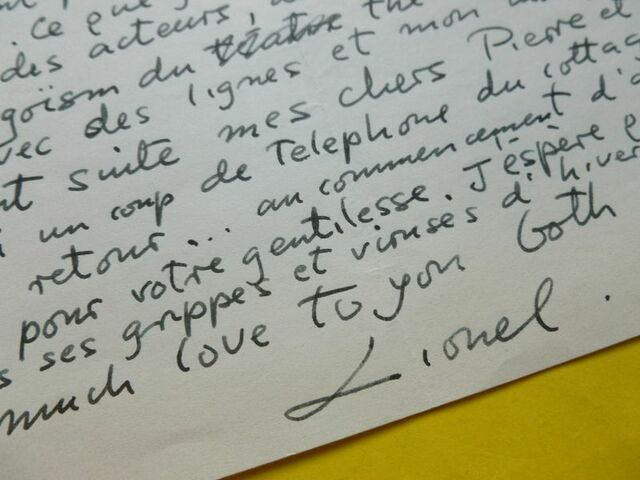 ce que
des acteurs,
goïsm du the
avec des lignes et mon
suite mes chers Pierre et
un coup de Telephone du cottag
retour... au commencement d'
pour votre gentilesse. J'éspère e
ses grippes et viruses d'hiver
much love to you both
Lionel.